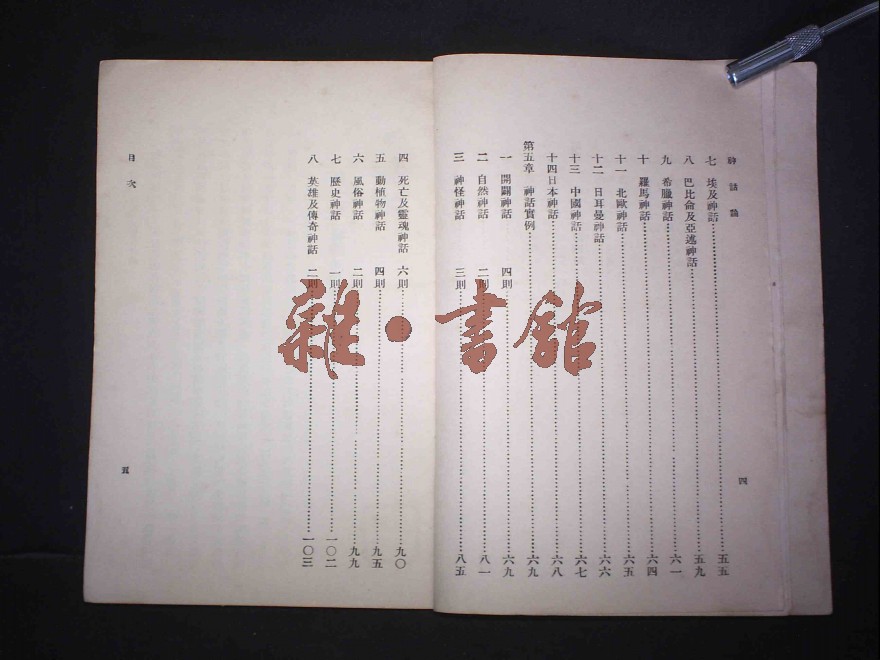 神話論
七 埃及神話……五五
八 巴比侖及亞述神話……五九
九 希臘神話……六一
十 羅馬神話……六四
十一 北歐神話……六五
十二 日耳曼神話……六六
十三 中國神話……六七
十四 日本神話……六八
第五章 神話實例……六九
一 開闢神話 四則……六九
二 自然神話 二則……八一
三 神怪神話 三則……八五
四
四 死亡及靈魂神話 六則……九〇
五 動植物神話 四則……九五
六 風俗神話 二則……九九
七 歷史神話 一則……一〇二
八 英雄及傳奇神話 二則……一〇三
目次
五
雜·書館